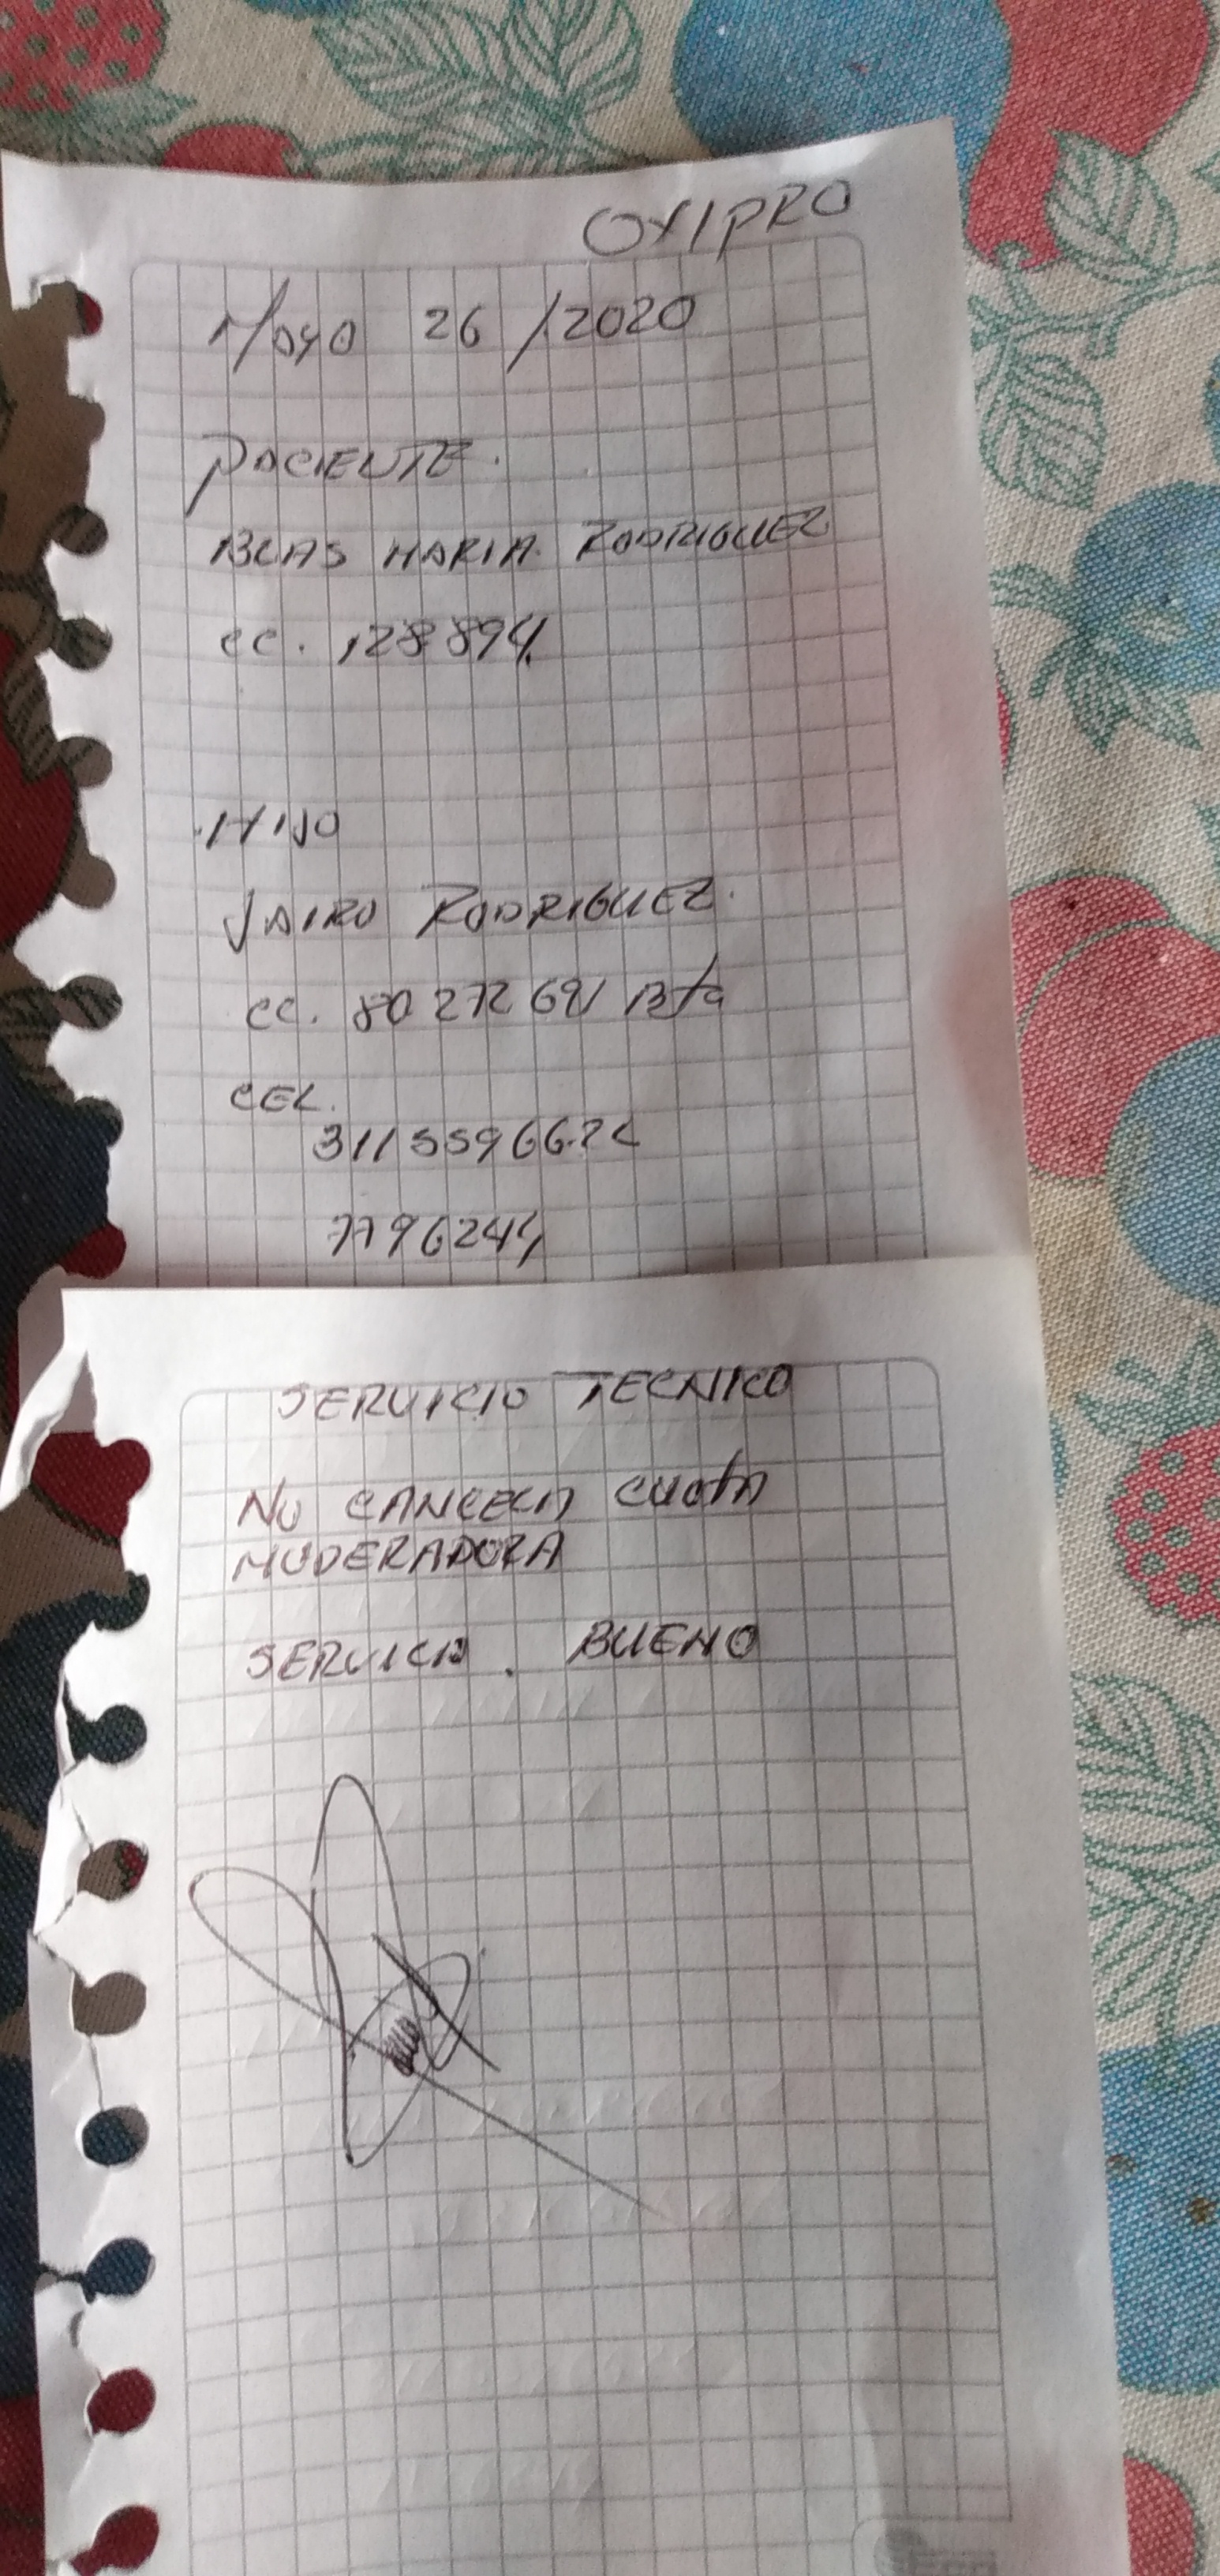 OXIPRO
Mayo 26/2020
PACIENTE.
BLAS MARIA RODRIGUEZ
CC. 128894
HIJO
JAIRO RODRIGUEZ.
CC. 80272691 Bta
CEL.
7796244
SERVICIO TECNICO
NO CANCELA CUOTA
MODERADORA
SERVICIO. BUENO